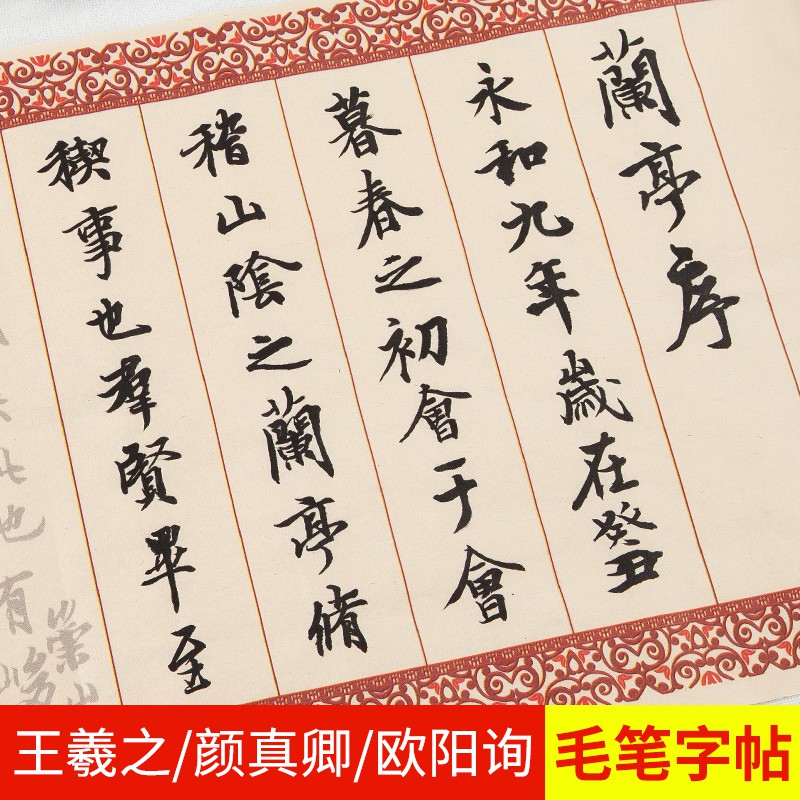 蘭亭序
永和九年歲在癸丑
暮春之初會于會
稽山陰之蘭亭脩
稧事也羣賢畢至
也有
崇山
王羲之/颜真卿/欧阳询
毛笔字帖